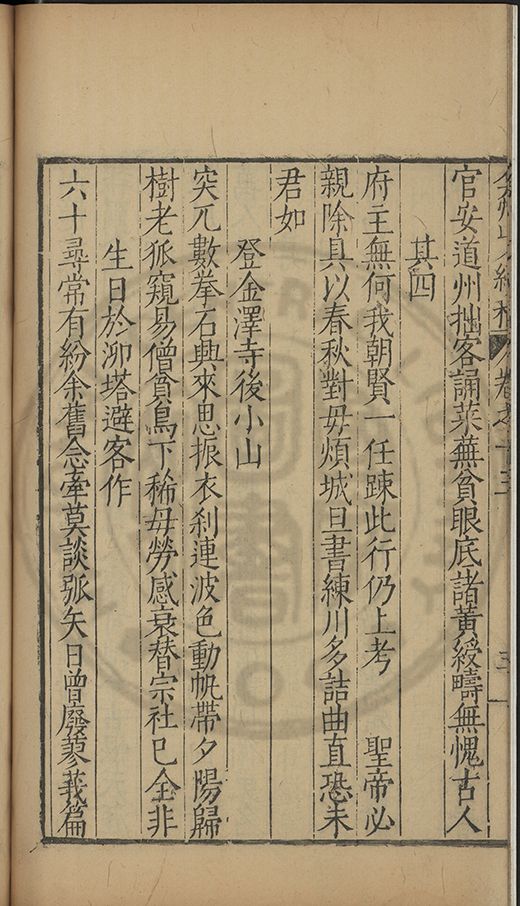 卷之十三
官安道州拙客誦萊蕪貧眼底諸黃綬疇無愧古人
其四
府主無何我朝賢一任踈此行仍上考　聖帝必
親除具以春秋對毋煩城旦書練川多詰曲直恐未
君如
登金澤寺後小山
突兀數拳石興來思振衣刹連波色動帆帶夕陽歸
樹老狐窺易僧貧鳥下稀毋勞感衰替宗社已全非
生日於泖塔避客作
六十尋常有紛余舊念牽莫談弧矢日曾廢蓼莪篇